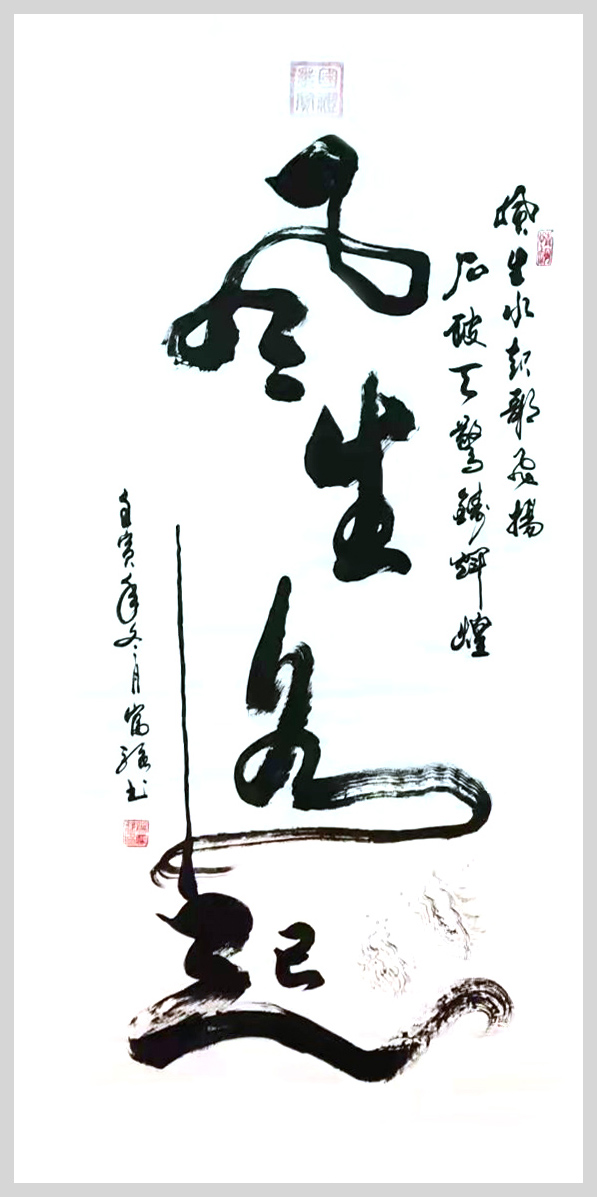 生水起歌飛揚
石破天驚鑄輝煌
風生水起
壬寅年冬月富强书